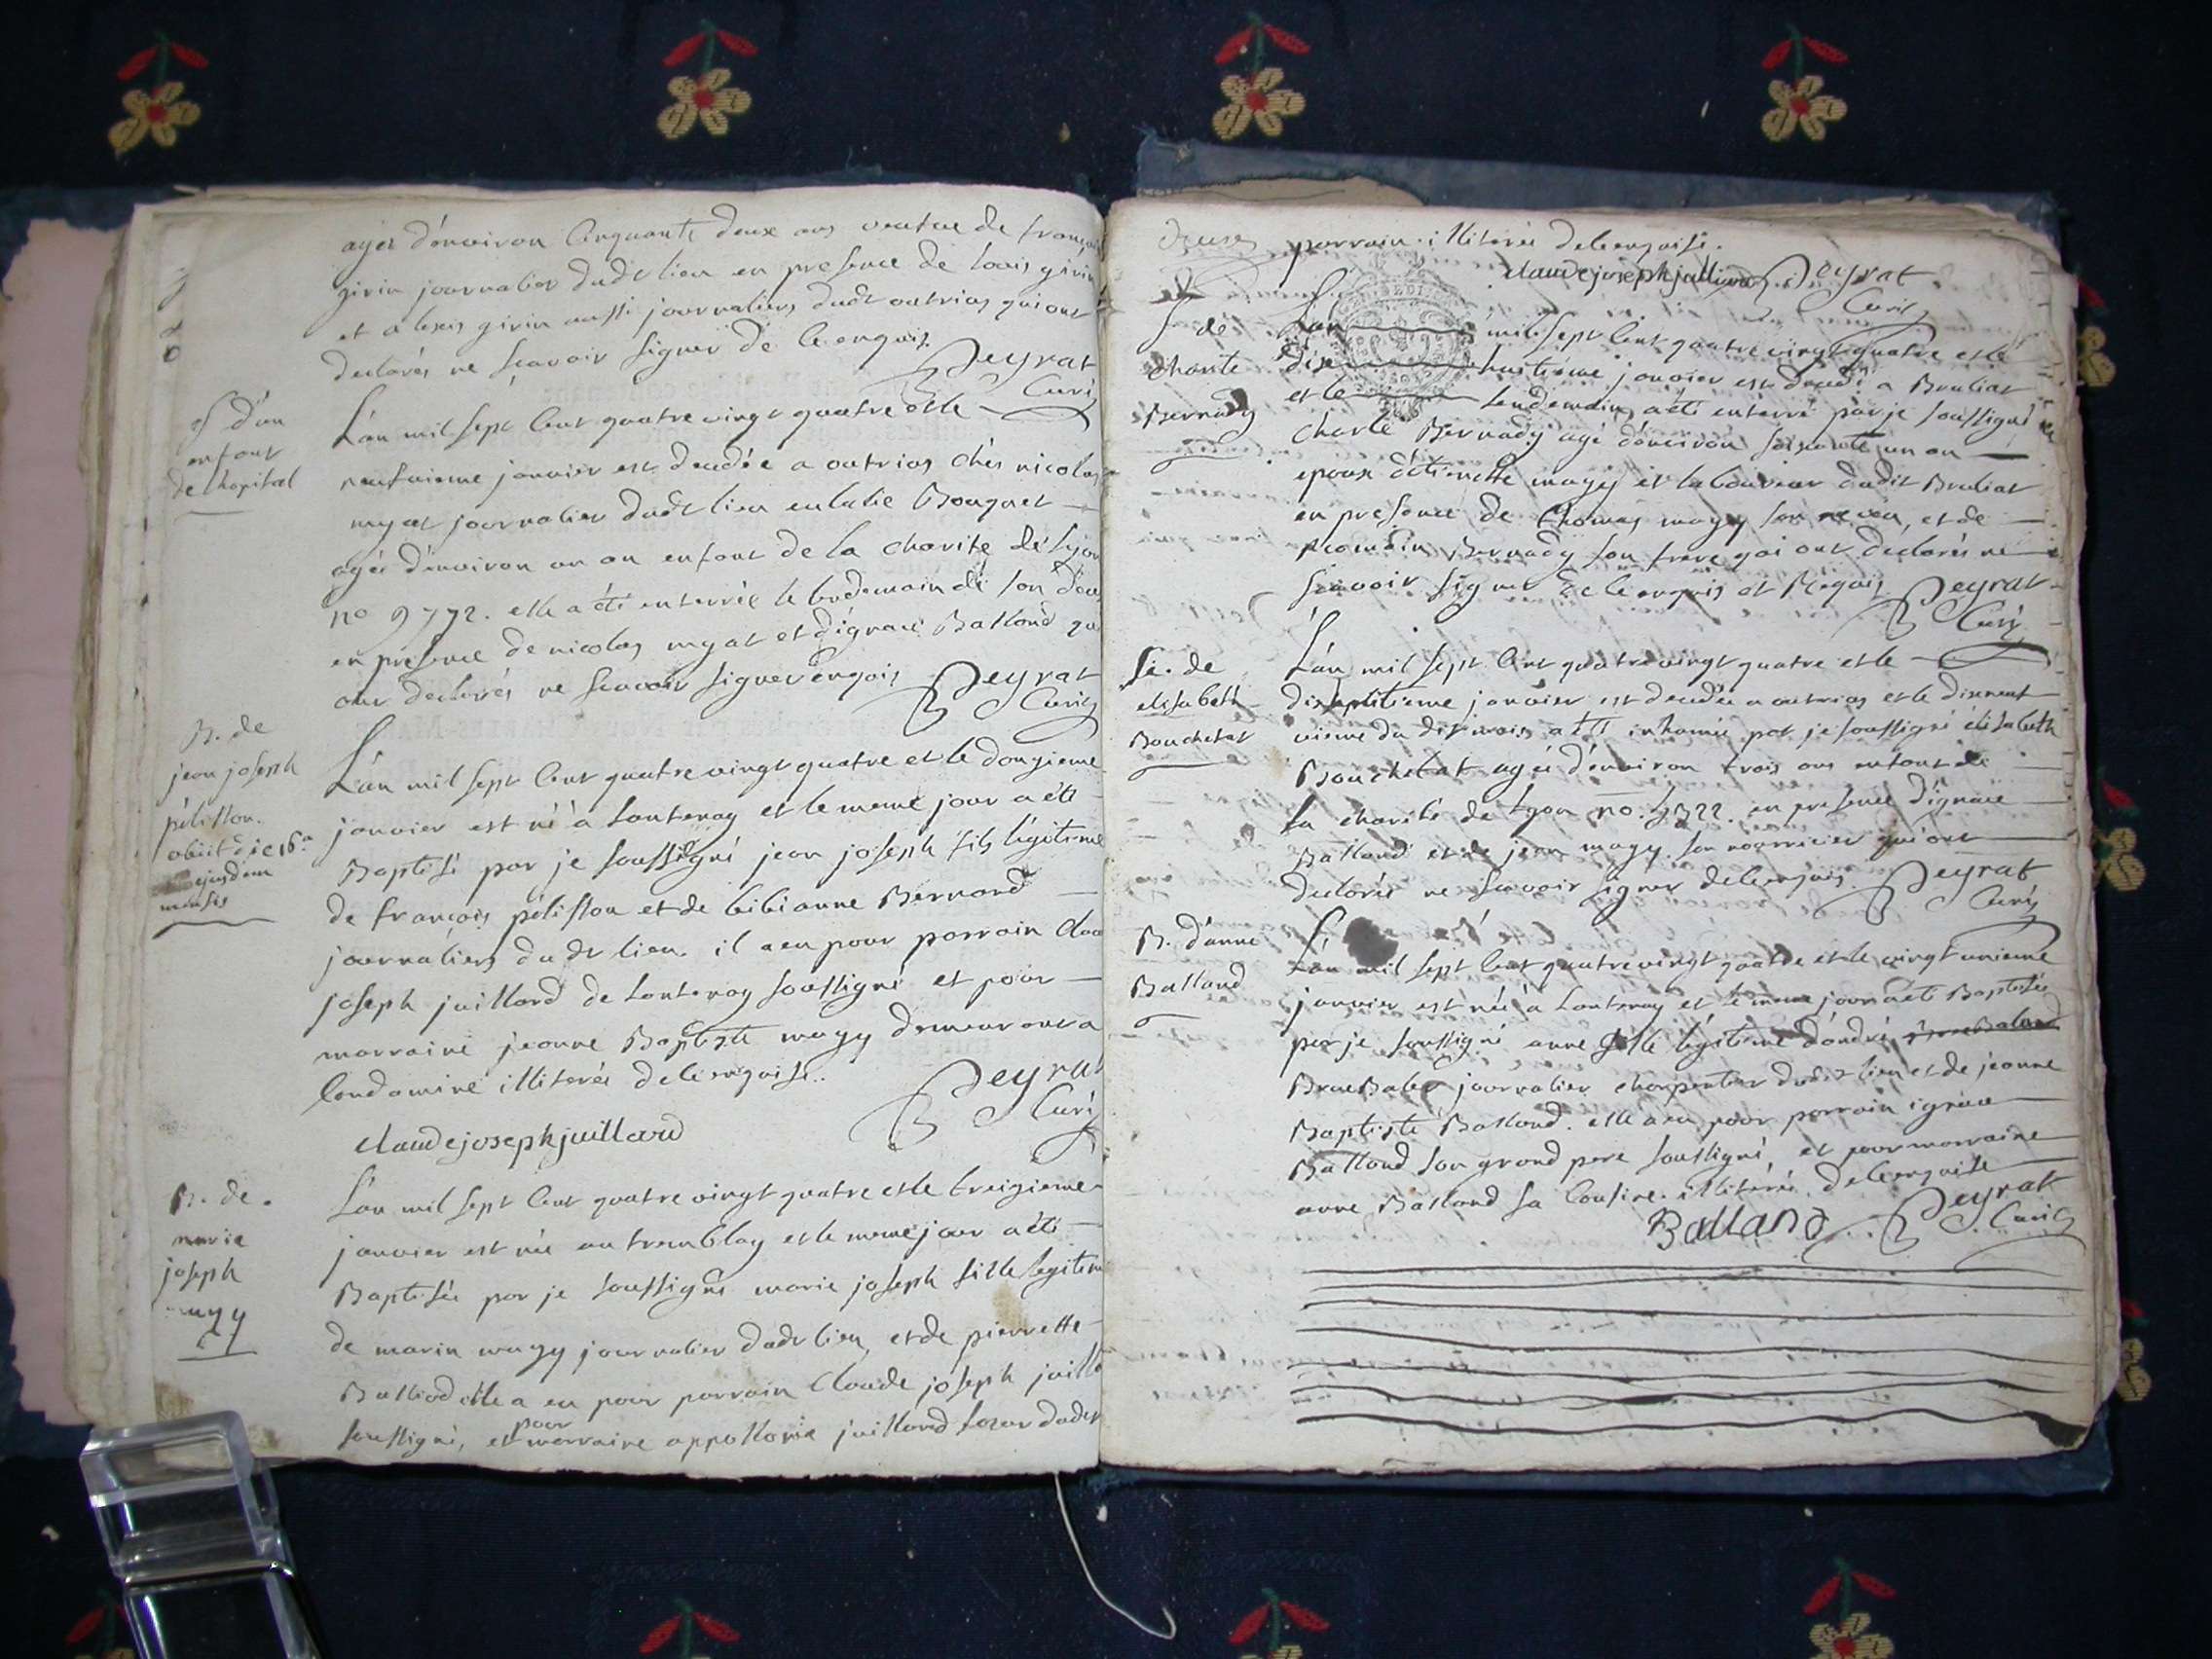 agée d'environ Cinquante deux ans veufve de françois
girin journalier dudt lieu en presence de louis girin
et alexis girin aussi journaliers dudt outrias qui ont
declarés ne scavoir signer de ce enquis
Peyrat
Curé
S d'un
enfant
de l'hopital
L'an mil sept Cent quatre vingt quatre et le
neufvieme janvier est decedée a outrias chés nicolas
myat journalier dudt lieu eulalie Bouquet
agée d'environ un an enfant de la charite de lyon
no 9772. elle a été enterrée le lendemain de son deces
en presence de nicolas myat et d'ignace Balland qui
ont declarés ne scavoir signer enquis
Peyrat
Curé
B. de
jean joseph
pélisson.
obiit die 16a
ejusdem
mensis
L'an mil sept Cent quatre vingt quatre et le douzieme
janvier est né a Lantenay et le meme jour a été
Baptisé par je soussigné jean joseph fils légitime
de françois pélisson et de bibianne Bernard
journaliers dudt lieu. il a eu pour parrain claude
joseph juillard de Lantenay soussigné et pour
marraine jeanne Baptiste magy demeurant a
Condamine illiterée de ce enquise..
Peyrat
Curé
claude joseph juillard
B. de.
marie
joseph
magy
L'an mil sept Cent quatre vingt quatre et le treizieme
janvier est née au tremblay et le meme jour a été
Baptisée par je soussigné marie joseph fille legitime
de marin magy journalier dudt lieu, et de pierrette
Balliod elle a eu pour parrain Claude joseph juillard
soussigné, et pour marraine appollonie juillard soeur dudit
parrain. illiterée de ce enquise.
claude joseph juillard Peyrat
Curé
S de
charle
Bernady
L'an mil sept Cent quatre vingt quatre et le
dix huitieme janvier est decedé a Bruliat
et le lendemain a été enterré par je soussigné
charle Bernady agé d'environ soixante un an
epoux d'etiennette magy et laboureur dudit Bruliat
en presence de thomas magy son neveu, et de
Bernady son frere qui ont declarés ne
scavoir signer de ce enquis et Requis
Peyrat
Curé
Se. de
elisabeth
Bouchetat
L'an mil sept Cent quatre vingt quatre et le
dixseptieme janvier est decedée a outrias et le dixneuf
vieme du dit mois a été inhumée par je soussigné élisabeth
Bouchetat agée d'environ trois ans enfant de
la charité de Lyon no. en presence d'ignace
Balland et de jean magy son nourricier qui ont
declarés ne scavoir signer de ce enquis
Peyrat
Curé
B. d'anne
Balland
L'an mil sept Cent quatre vingt quatre et le vingt unieme
janvier est née a Lantenay et le meme jour a été Baptisée
par je soussigné anne fille légitime d'andré
journalier charpentier dudit lieu et de jeanne
Baptiste Balland. elle a eu pour parrain ignace
Balland son grand pere soussigné, et pour marraine
anne Balland sa Cousine. illiterée. de ce enquise
Balland Peyrat
Curé